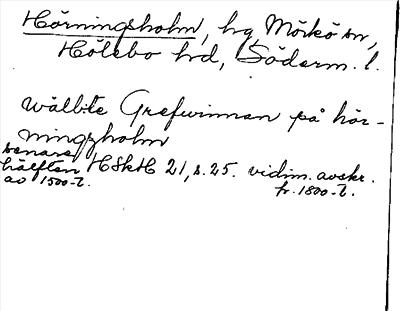 Hörningsholm, hg, Mörkö sn,
Hölebo hd, Söderm. l.
wälbite Grefwinnan på hör-
ningzholm
senare
hälften HSkH 21, s. 25. vidim. avskr.
av 1500-t. fr. 1800-t.